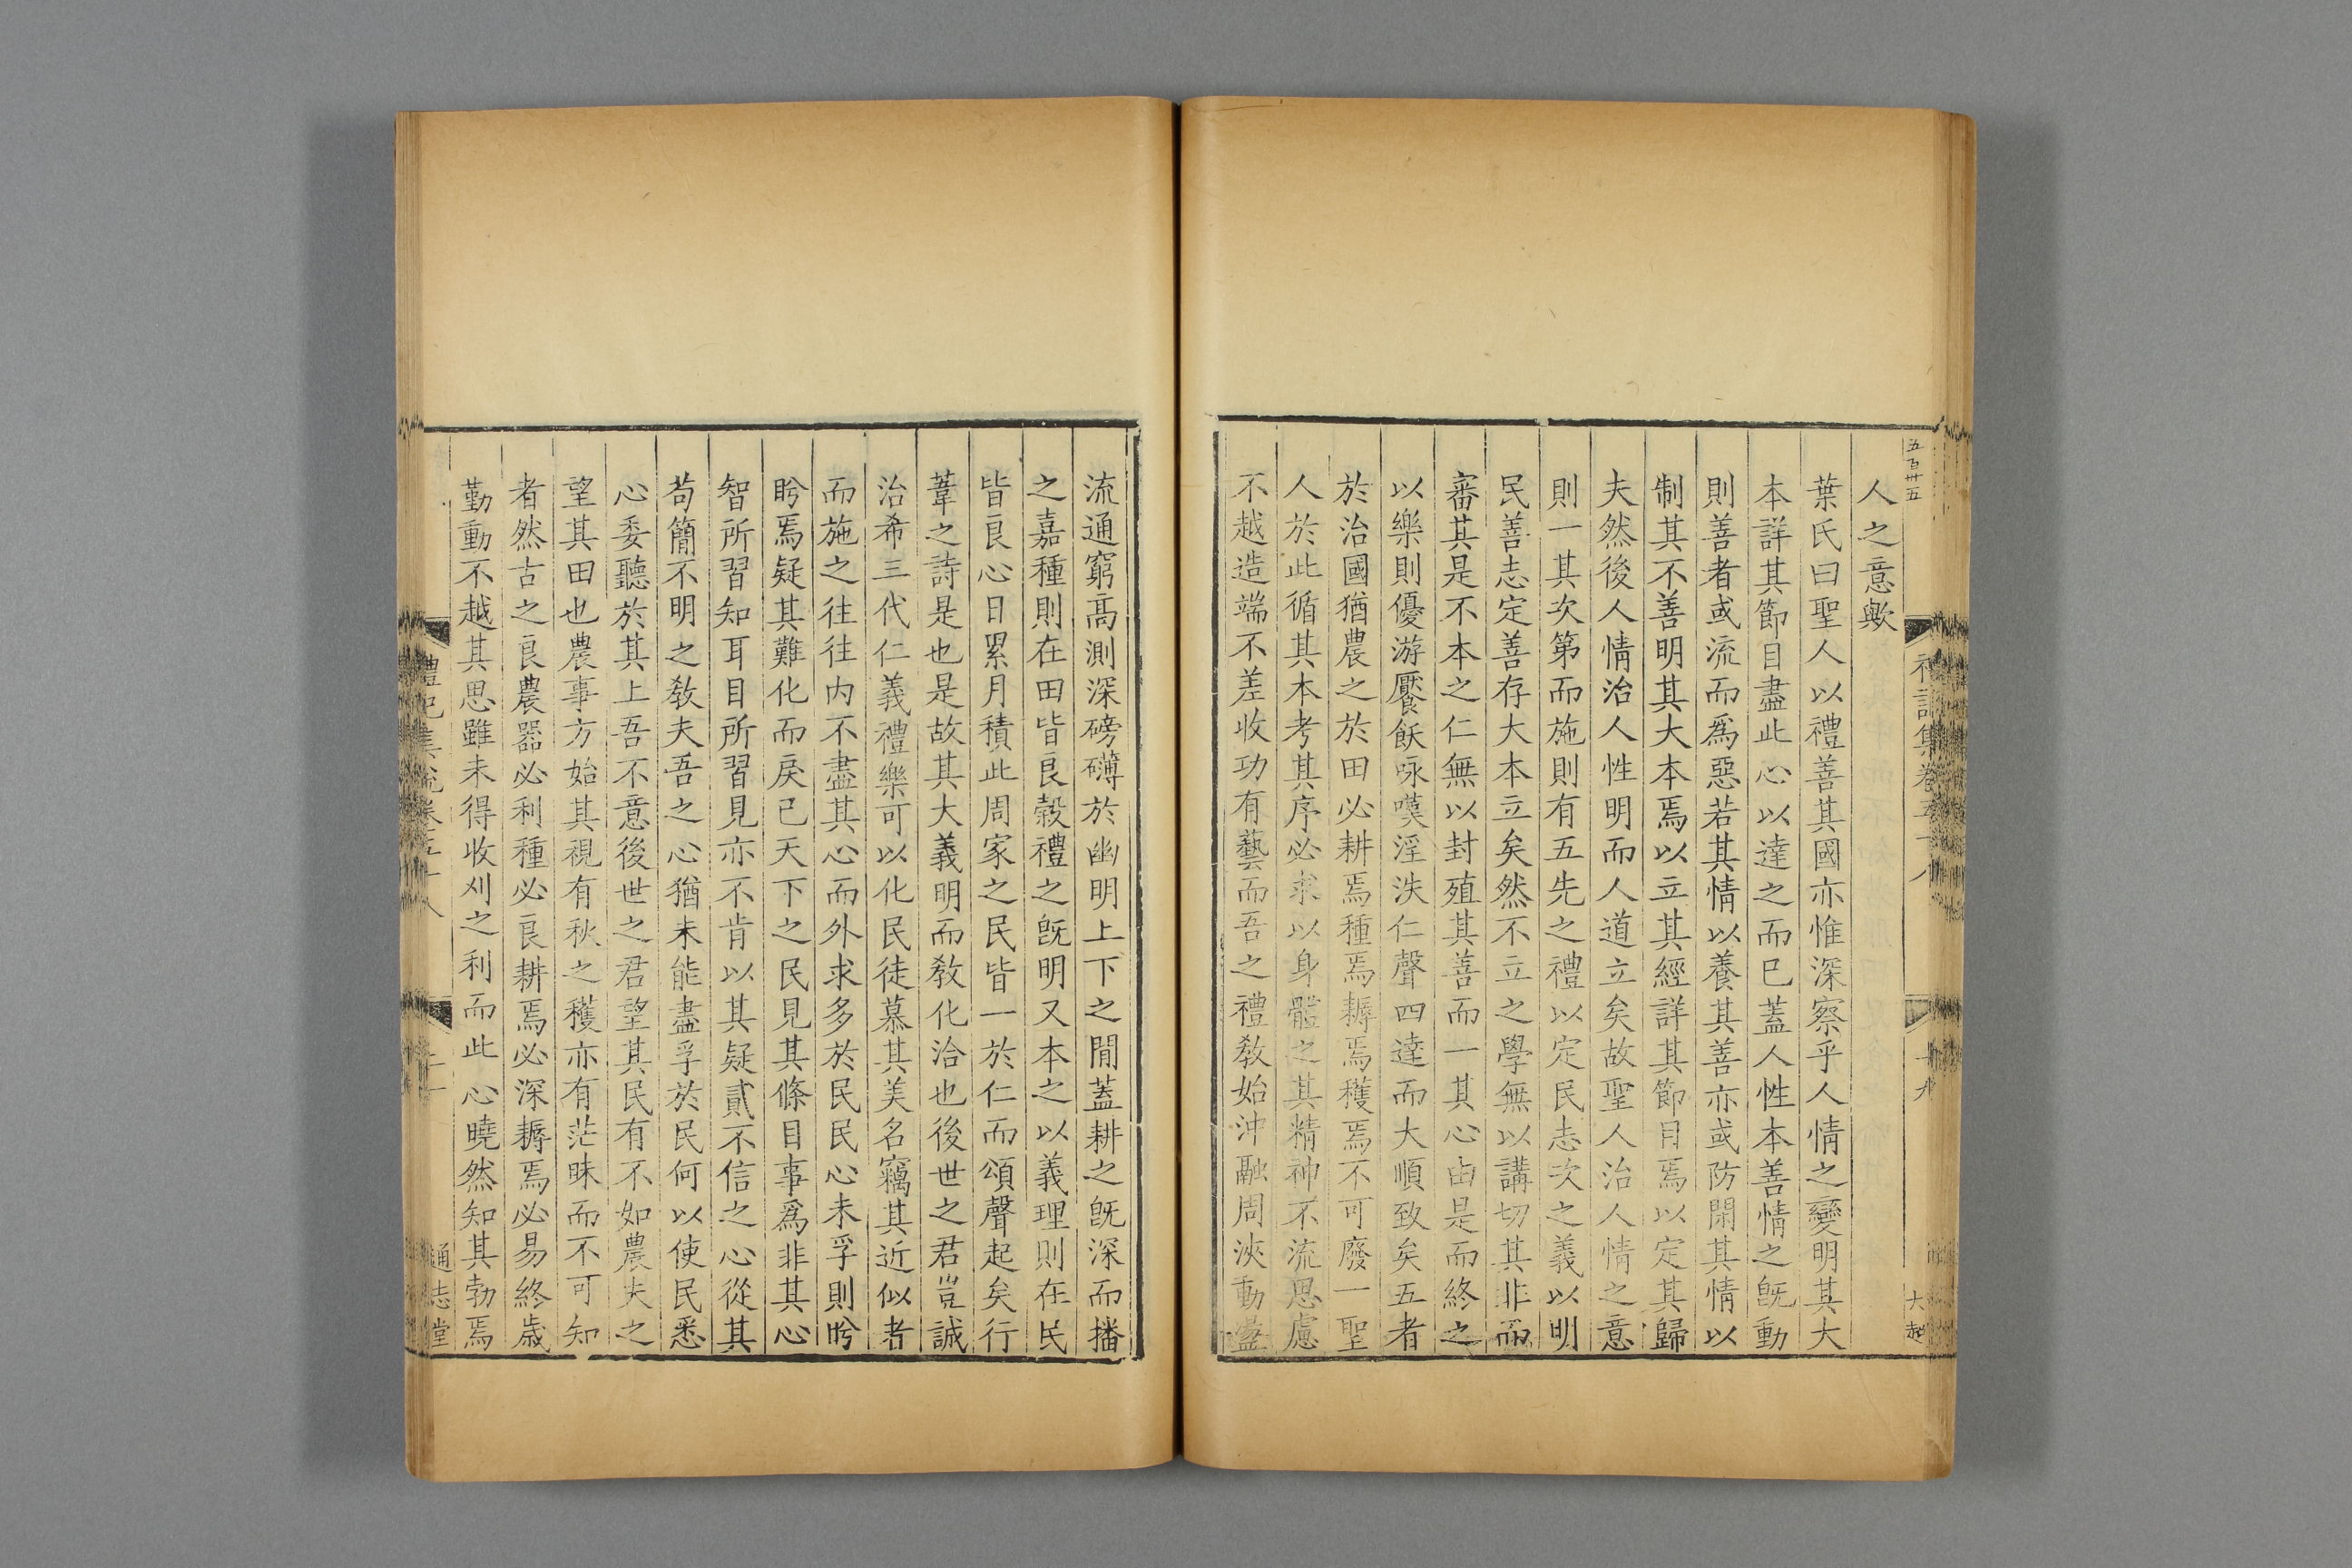 五百卅五
禮記集卷五十八
十九
大起
人之意歟
葉氏曰聖人以禮善其國亦惟深察乎人情之變明其大
本詳其節目盡此心以達之而巳蓋人性本善情之旣動
則善者或流而爲惡若其情以養其善亦或防閑其情以
制其不善明其大本焉以立其經詳其節目焉以定其歸
夫然後人情治人性明而人道立矣故聖人治人情之意
則一其次第而施則有五先之禮以定民志次之義以明
民善志定善存大本立矣然不立之學無以講切其非而
審其是不本之仁無以封殖其善而一其心由是而終之
以樂則優游饜飫咏嘆淫泆仁聲四達而大順致矣五者
於治國猶農之於田必耕焉種焉耨焉穫焉不可廢一聖
人於此循其本考其序必求以身體之其精神不流思慮
不越造端不差收功有藝而吾之禮敎始沖融周浹動盪
流通窮高測深磅礴於幽明上下之閒蓋耕之旣深而播
之嘉種則在田皆良穀禮之旣明又本之以義理則在民
皆良心日累月積此周家之民皆一於仁而頌聲起矣行
葦之詩是也是故其大義明而敎化洽也後世之君豈誠
治希三代仁義禮樂可以化民徒慕其美名竊其近似者
而施之往往内不盡其心而外求多於民民心未孚則盻
盻焉疑其難化而戾已天下之民見其條目事爲非其心
智所習知耳目所習見亦不肯以其疑貳不信之心從其
苟簡不明之敎夫吾之心猶未能盡孚於民何以使民悉
心委聽於其上吾不意後世之君望其民有不如農夫之
望其田也農事方始其視有秋之穫亦有茫昧而不可知
者然古之良農器必利種必良耕焉必深耨焉必易終歲
勤動不越其思雖未得收刈之利而此心曉然知其勃焉
禮記集說卷五十八
二十
通志堂